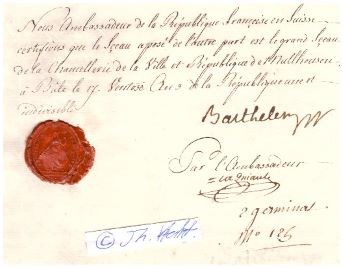 Nous Ambassadeur de la République française en Suisse
certifions que le Sceau apposé de l'autre part est le grand Sceau
de la Chancellerie de la Ville et République de Mulhausen
à Bâle le 17. Ventose An de la République une et
indivisible
Barthelemy
Par l'Ambassadeur
2 germinal
N.º 125
© Th.